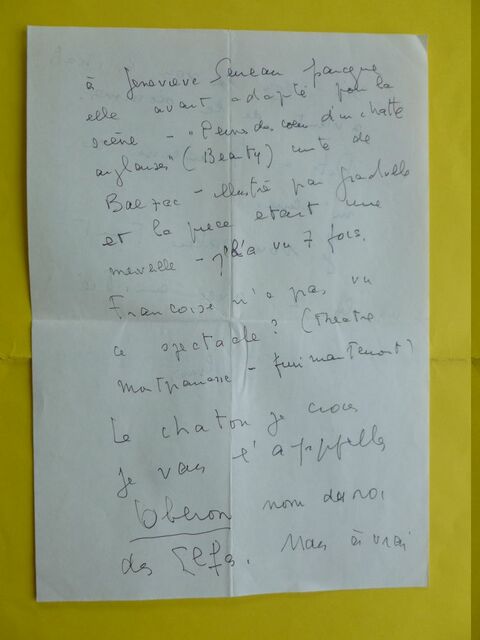 à Geneviève Serreau parceque
elle avait adapté pour la
scène - "Peines de coeur d'un chatte
anglaise" (Beauty) conte de
Balzac - illustré par Grandville
et la pièce etait une
merveille - j'l'a vu 7 fois.
Françoise n'a pas vu
ce spectacle? (théatre
Montparnasse - fini maintenant)
Le chaton je crois
je vais l'appeller
Oberon nom du roi
des Elfes. Mais à vrai